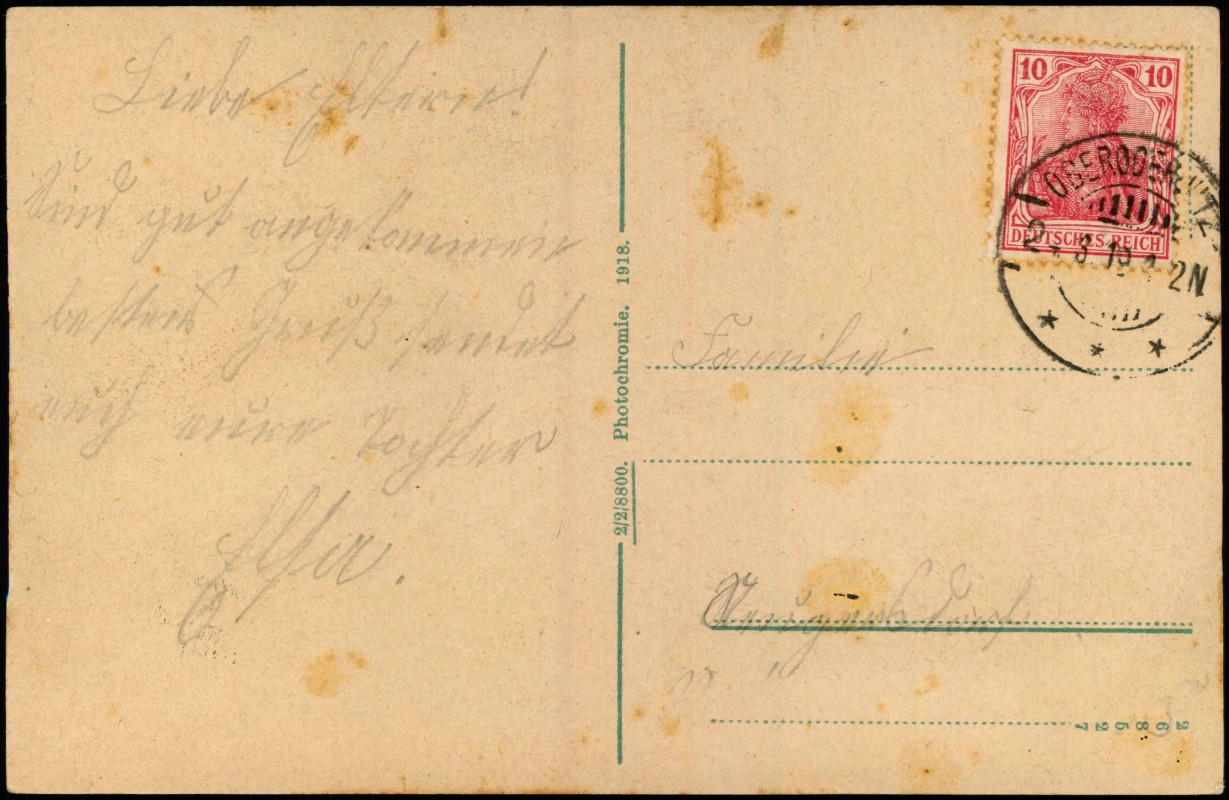 Liebe Eltern!
Sind gut angekommen
besten Gruß sendet
euch eure Tochter
Elsa.
2/2/8800. Photochromie. 1918.
10 10
DEUTSCHES REICH
OBERODERWITZ
2N
Familie
26857